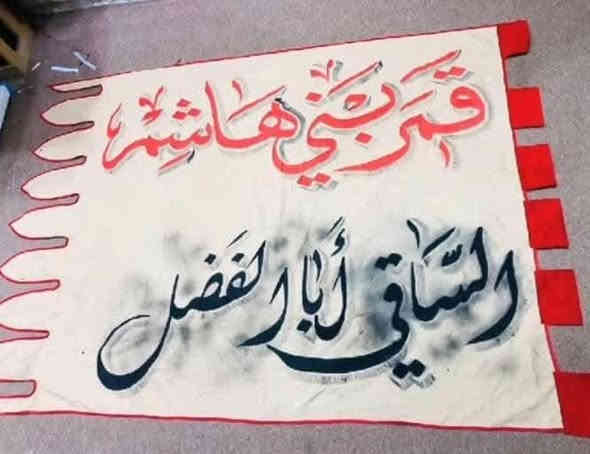 قَمَر بَنِي هَاشِمْ
السَّاقي أَبا الفَضل